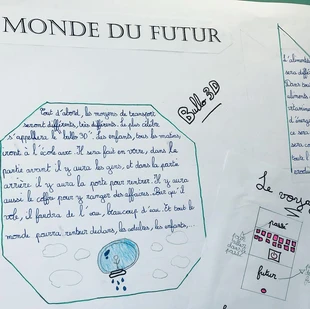 MONDE DU FUTUR
Tout d'abord, les moyens de transport
seront différents, très différents. Le plus célèbre
s'appellera le "bullo 3D": des enfants, tous les matins,
iront à l'école avec. Il sera fait en verre, dans la
partie avant il y aura les gens, et dans la partie
arrière il y aura la porte pour rentrer. Il y aura
aussi le coffre pour y ranger des affaires. Pour qu'il
vole, il faudra de l'eau, beaucoup d'eau. Et tout le
monde pourra rentrer dedans, les adultes, les enfants,...
Bullo 3D
L'aliment
sera diffé
Dans tou
aliments
vitamine
d'énerg
ce sera
sera
sera
évolu
Le voya
passé
futur